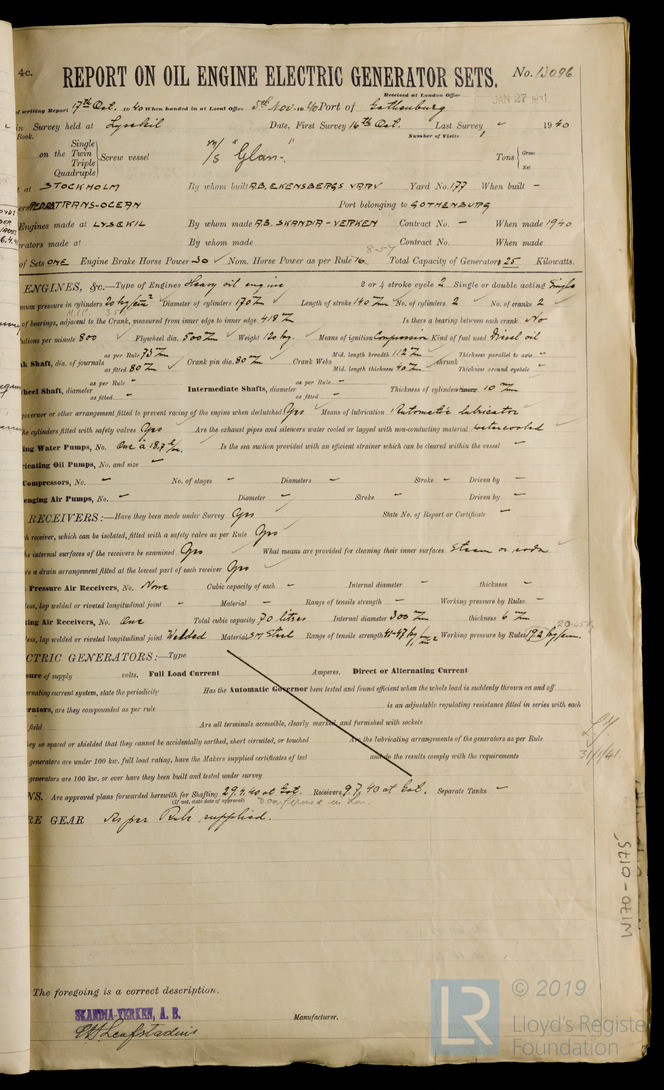 4c. REPORT ON OIL ENGINE ELECTRIC GENERATOR SETS. No. 13096
Received at London Office JAN 27 1941
of writing Report 17th Oct. 1940 When handed in at Local Office 5th Nov. 1940 Port of Gothenburg
in Survey held at Lysekil Date, First Survey 16th Oct. Last Survey 1940
Book. Number of Visits 1
on the Single Twin Triple Quadruple Screw vessel m/s "Glan" Tons Gross Net
at STOCKHOLM By whom built A.B. EKENSBERGS VARV Yard No. 177 When built -
TRANS-OCEAN Port belonging to GOTHENBURG
Engines made at LYSEKIL By whom made A.B. SKANDIA-VERKEN Contract No. - When made 1940
rators made at By whom made Contract No. When made
of Sets ONE Engine Brake Horse Power 30 Nom. Horse Power as per Rule Total Capacity of Generators 25 Kilowatts.
ENGINES, &c.—Type of Engines Heavy oil engine 2 or 4 stroke cycle 2 Single or double acting Single
mum pressure in cylinders 20 kg/cm² Diameter of cylinders 170 m/m Length of stroke 140 m/m No. of cylinders 2 No. of cranks 2
of bearings, adjacent to the Crank, measured from inner edge to inner edge 418 m/m Is there a bearing between each crank No
utions per minute 800 Flywheel dia. 500 m/m Weight 120 kg. Means of ignition Compression Kind of fuel used Diesel oil
nk Shaft, dia. of journals as per Rule 73 m/m as fitted 80 m/m Crank pin dia. 80 m/m Crank Webs Mid. length breadth 112 m/m Mid. length thickness 40 m/m shrunk Thickness parallel to axis - Thickness around eyehole -
heel Shaft, diameter as per Rule - as fitted - Intermediate Shafts, diameter as per Rule - as fitted - Thickness of cylinder liners 10 m/m
governor or other arrangement fitted to prevent racing of the engine when declutched Yes Means of lubrication Automatic lubricator
the cylinders fitted with safety valves Yes Are the exhaust pipes and silencers water cooled or lagged with non-conducting material watercooled
ing Water Pumps, No. One à 18.7 Is the sea suction provided with an efficient strainer which can be cleared within the vessel -
ricating Oil Pumps, No. and size -
Compressors, No. - No. of stages - Diameters - Stroke - Driven by -
enging Air Pumps, No. - Diameter - Stroke - Driven by -
RECEIVERS:—Have they been made under Survey Yes State No. of Report or Certificate -
h receiver, which can be isolated, fitted with a safety valve as per Rule Yes
he internal surfaces of the receivers be examined Yes What means are provided for cleaning their inner surfaces Steam or soda
re a drain arrangement fitted at the lowest part of each receiver Yes
Pressure Air Receivers, No. None Cubic capacity of each - Internal diameter - thickness -
less, lap welded or riveted longitudinal joint - Material - Range of tensile strength - Working pressure by Rules -
ting Air Receivers, No. One Total cubic capacity 70 litres Internal diameter 300 m/m thickness 6 m/m
less, lap welded or riveted longitudinal joint Welded Material S.M. Steel Range of tensile strength 41-47 kg/m² Working pressure by Rules 19.2 kg/cm.
CTRIC GENERATORS:—Type
sure of supply volts. Full Load Current Amperes. Direct or Alternating Current
ernating current system, state the periodicity Has the Automatic Governor been tested and found efficient when the whole load is suddenly thrown on and off
rators, are they compounded as per rule is an adjustable regulating resistance fitted in series with each
field Are all terminals accessible, clearly marked, and furnished with sockets
hey so spaced or shielded that they cannot be accidentally earthed, short circuited, or touched Are the lubricating arrangements of the generators as per Rule
generators are under 100 kw. full load rating, have the Makers supplied certificates of test and do the results comply with the requirements
generators are 100 kw. or over have they been built and tested under survey
NS. Are approved plans forwarded herewith for Shafting 29.4.40 at Got. Receivers 9.7.40 at Got. Separate Tanks -
(If not, state date of approval)
RE GEAR As per Rule supplied.
31/1/41
W170-0175
The foregoing is a correct description.
SKANDIA-VERKEN, A. B.
Manufacturer.
LR © 2019
Lloyd's Register
Foundation